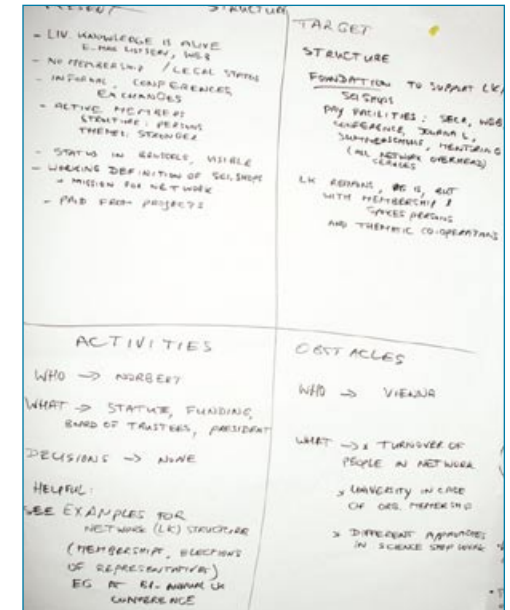 PRESENT STRUCTURE
- LIV. KNOWLEDGE IS ALIVE
E-MAIL LISTSERV, WEB
- NO MEMBERSHIP / LEGAL STATUS
- INFORMAL, CONFERENCES,
EXCHANGES
- ACTIVE MEMBERS
STRUCTURE: PERSONS
THEMES: STRONGER
- STATUS IN BRUSSELS, VISIBLE
- WORKING DEFINITION OF SCI.SHOPS
+ MISSION FOR NETWORK
- PAID FROM PROJECTS
TARGET
STRUCTURE
FOUNDATION TO SUPPORT LK/
SCI SHOPS
PAY FACILITIES: SECR, WEB
CONFERENCE, JOURNALS,
SUMMERSCHOOL, MENTORING
(ALL NETWORK OVERHEAD)
SERVICES
LK REMAINS, AS IS, BUT
WITH MEMBERSHIP &
SPOKES PERSONS
AND THEMATIC CO-OPERATIONS
ACTIVITIES
WHO → NORBERT
WHAT → STATUTE, FUNDING,
BOARD OF TRUSTEES, PRESIDENT
DECISIONS → NONE
HELPFUL:
SEE EXAMPLES FOR
NETWORK (LK) STRUCTURE
(MEMBERSHIP, ELECTIONS
OF REPRESENTATIVE)
EG AT BI-ANNUAL LK
CONFERENCE
OBSTACLES
WHO → VIENNA
WHAT → x TURNOVER OF
PEOPLE IN NETWORK
x UNIVERSITY IN CASE
OF ORG. MEMBERSHIP
x DIFFERENT APPROACHES
IN SCIENCE SHOP WORK